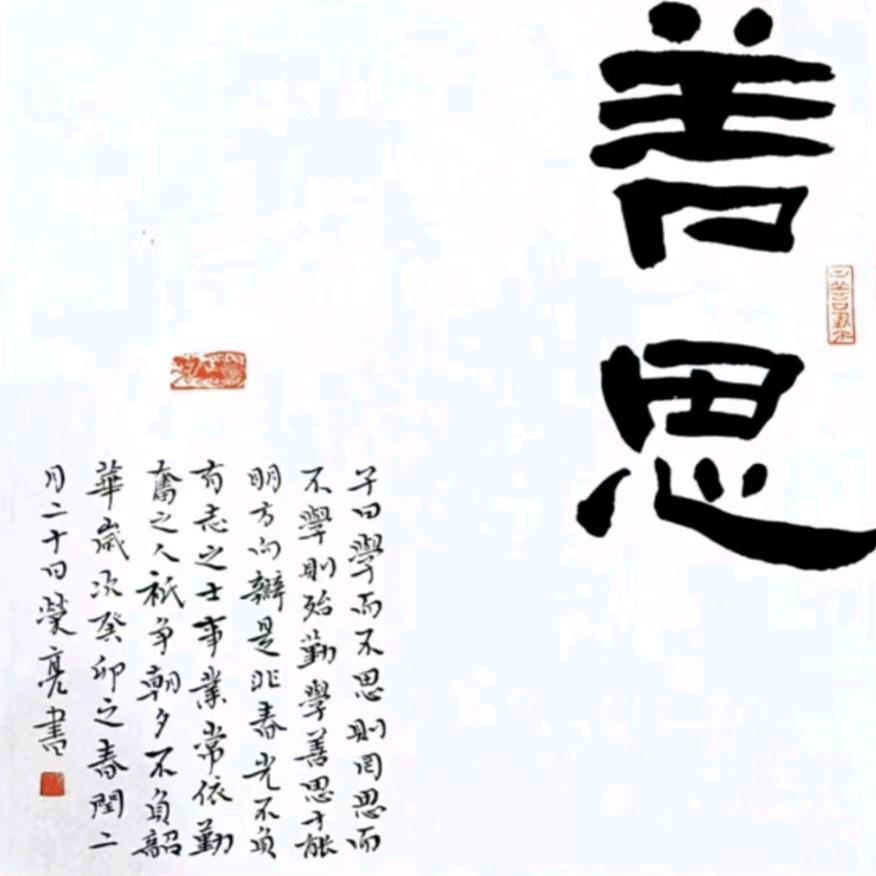 善思
子曰學而不思則罔思而
不學則殆勤學善思才能
明方向辦是非春光不負
有志之士事業常依勤
奮之人祇争朝夕不負韶
華歲次癸卯之春閏二
月二十日榮亮書